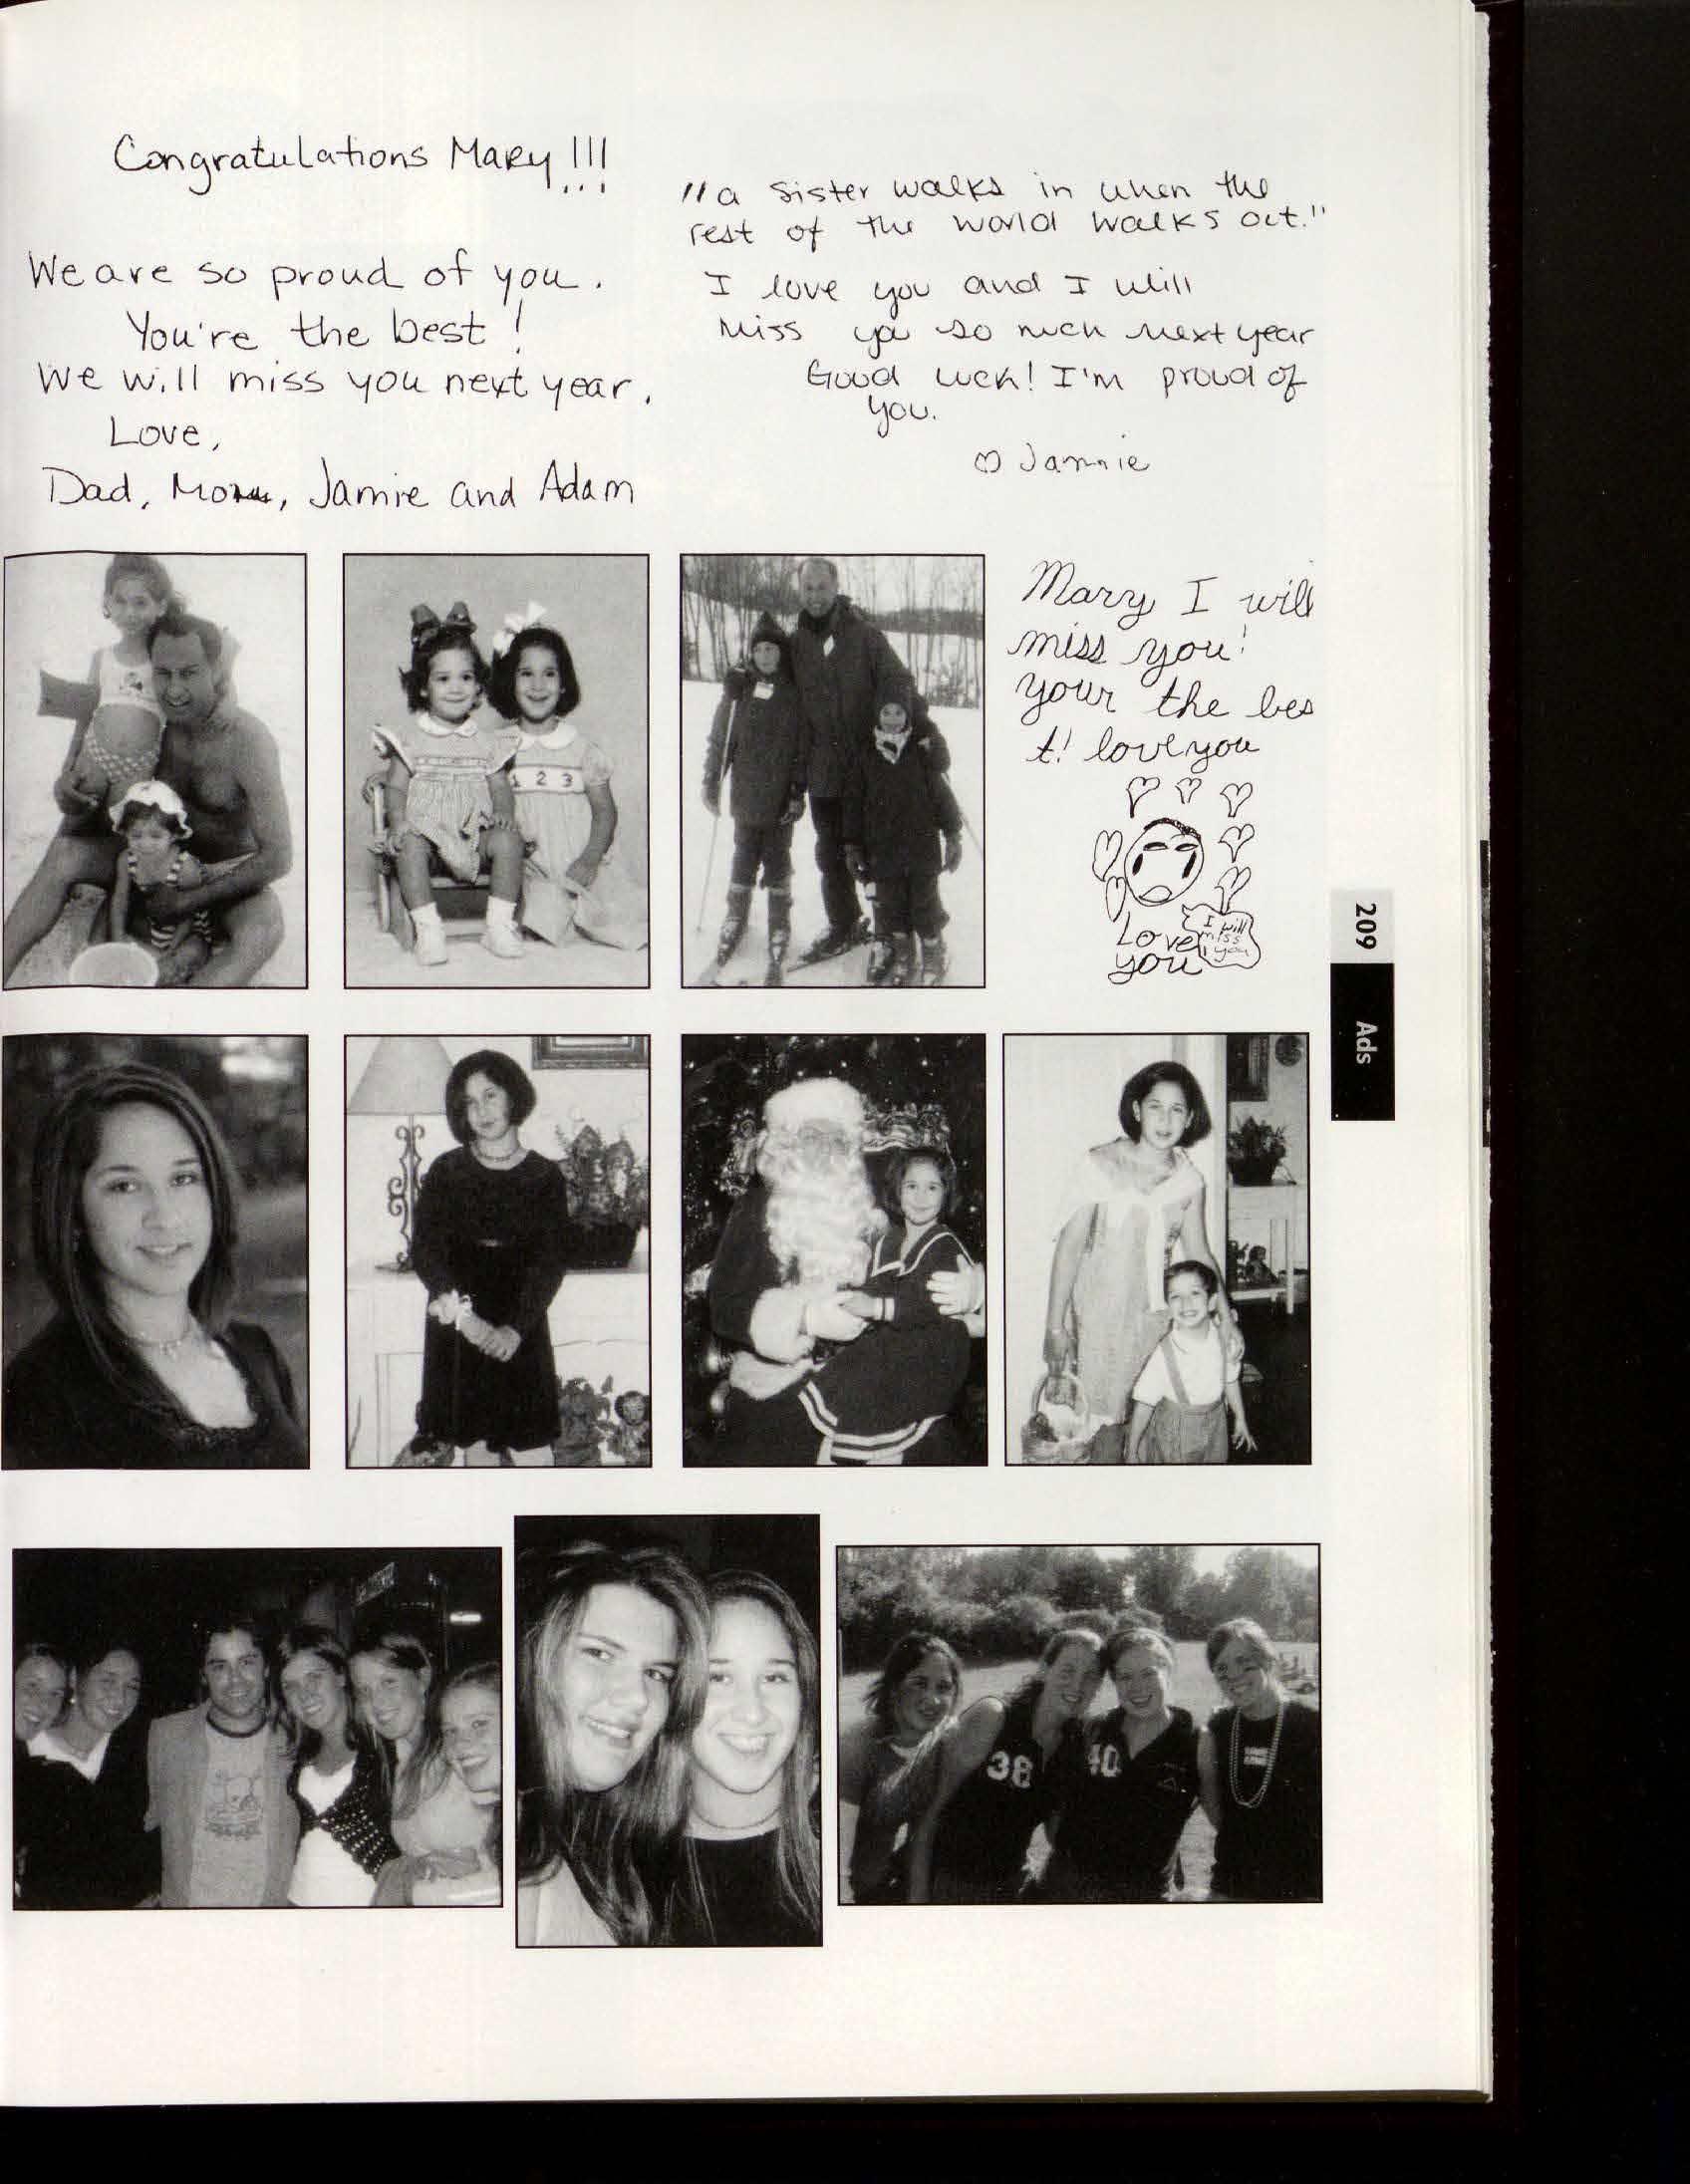 Congratulations Mary!!!
We are so proud of you.
You're the best!
We will miss you next year.
Love,
Dad, Mom, Jamie and Adam
"a sister walks in when the
rest of the world walks out."
I love you and I will
miss you so much next year
Good luck! I'm proud of
you.
♡ Jamie
Mary I will
miss you!
your the bes
t! love you
Love
you
I will
miss
you
1 2 3
38
40
209
Ads